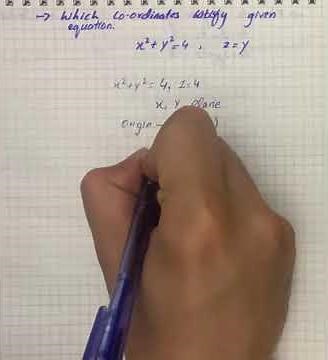 → Which co-ordinates satisfy given
equation.
x²+y²=4, z=y
x²+y²=4, z=4
x, y plane
origin –